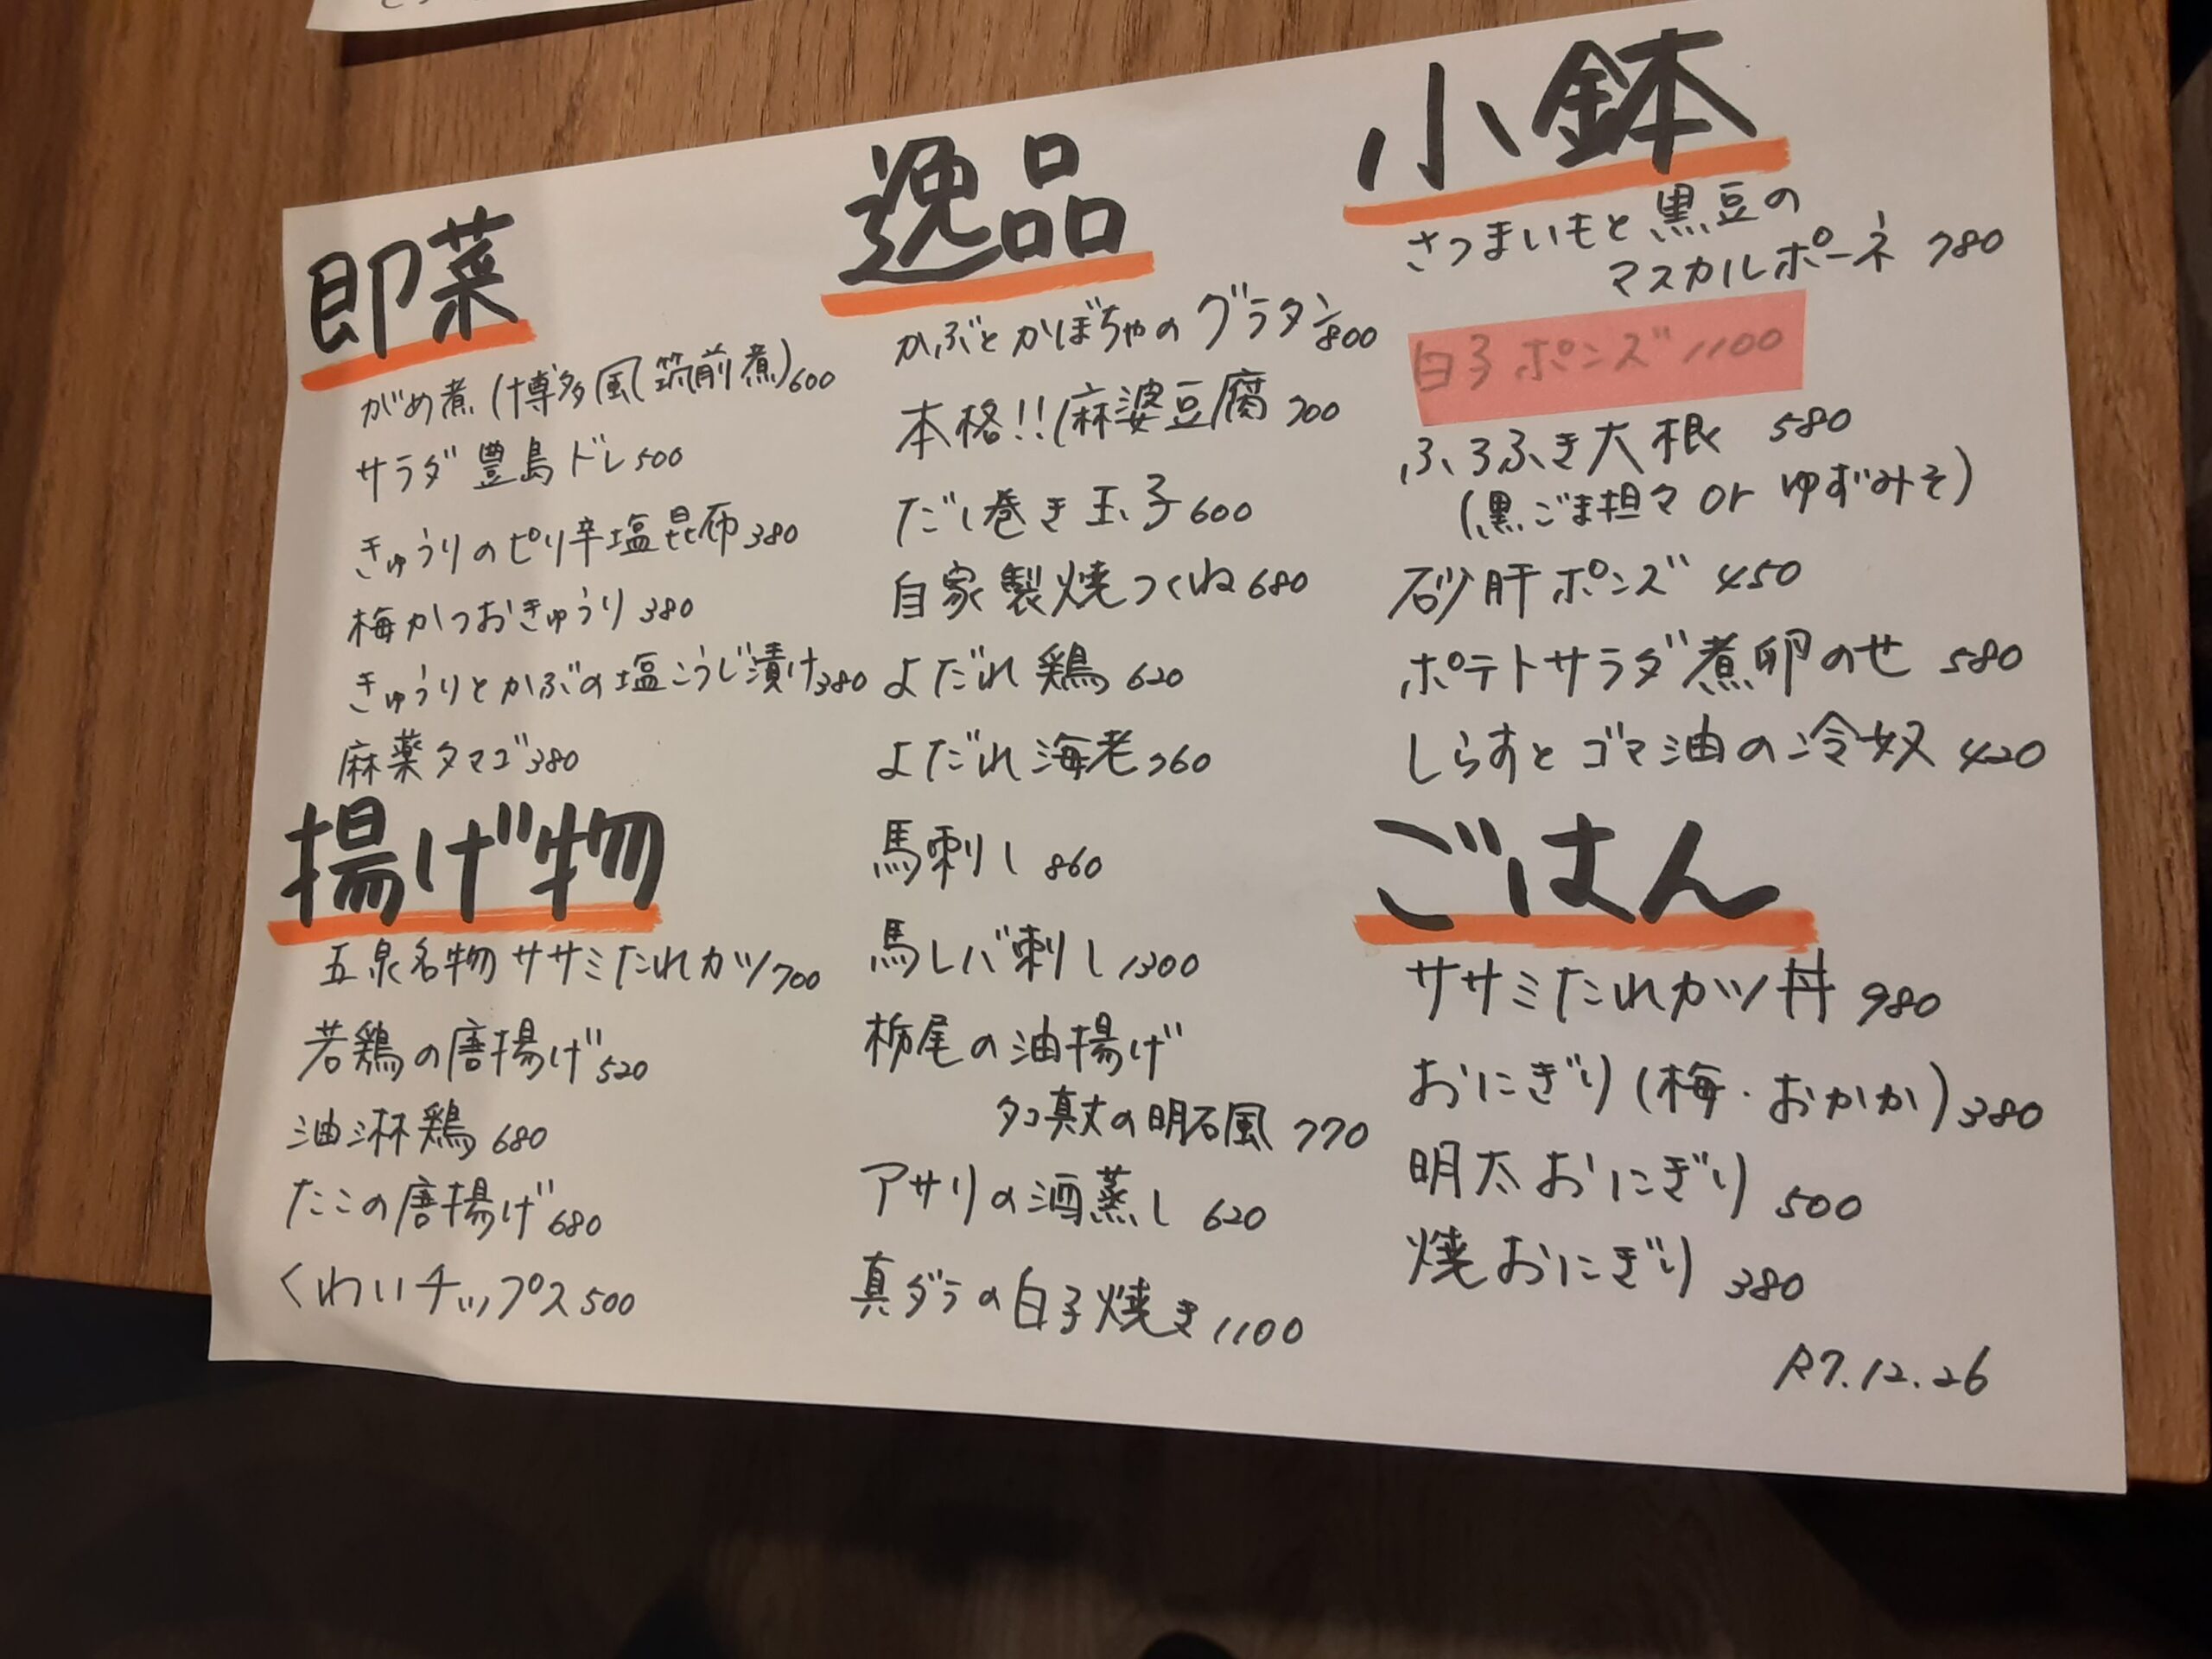 即菜
がめ煮(博多風筑前煮)600
サラダ豊島ドレ500
きゅうりのピリ辛塩昆布380
梅かつおきゅうり380
きゅうりとかぶの塩こうじ漬け380
麻薬タマゴ380
揚げ物
五泉名物ササミたれカツ700
若鶏の唐揚げ520
油淋鶏680
たこの唐揚げ680
くわいチップス500
逸品
かぶとかぼちゃのグラタン800
本格!!麻婆豆腐700
だし巻き玉子600
自家製焼つくね680
よだれ鶏620
よだれ海老760
馬刺し860
馬レバ刺し1300
栃尾の油揚げ
タコ真丈の明石風770
アサリの酒蒸し620
真ダラの白子焼き1100
小鉢
さつまいもと黒豆の
マスカルポーネ780
白子ポンズ1100
ふろふき大根 580
(黒ごま担々orゆずみそ)
砂肝ポンズ450
ポテトサラダ煮卵のせ580
しらすとゴマ油の冷奴420
ごはん
ササミたれカツ丼980
おにぎり(梅・おかか)380
明太おにぎり500
焼おにぎり380
R7.12.26